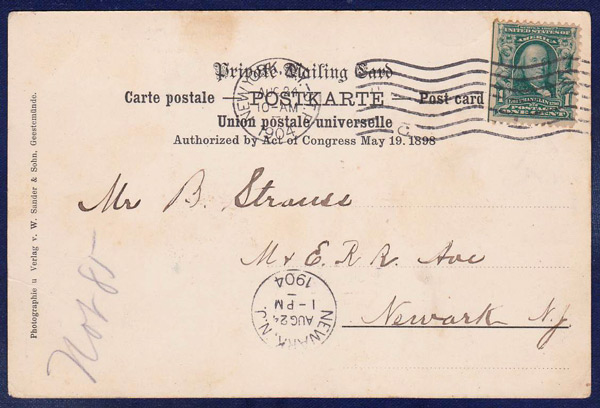 UNITED STATES OF AMERICA
Private Mailing Card
Carte postale — POSTKARTE — Post card
Union postale universelle
Authorized by Act of Congress May 19. 1898
NEW YORK, N.Y.
AUG 24
10-AM
1904
1 FRANKLIN 1
ONE CENT
Mr B. Strauss
M & E. R R. Ave
Newark N.J.
NEWARK, N.J.
AUG 24
1-PM
1904
Not 85
Photographie u Verlag v. W. Sander & Sohn, Geestemünde.